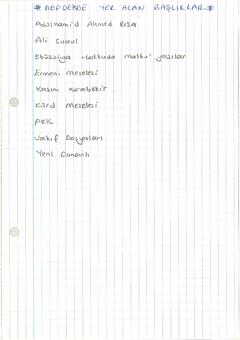 # DEPDERDE YER ALAN BAŞLIKLAR #
Abdülhamid Ahmed Rıza
Ali Suavi
Ebüzziya Hattında matbu' yazılar
Ermeni Meselesi
Kazım Karabekir
Kürd Meselesi
PKK
Vakıf Dosyaları
Yeni Osmanlı